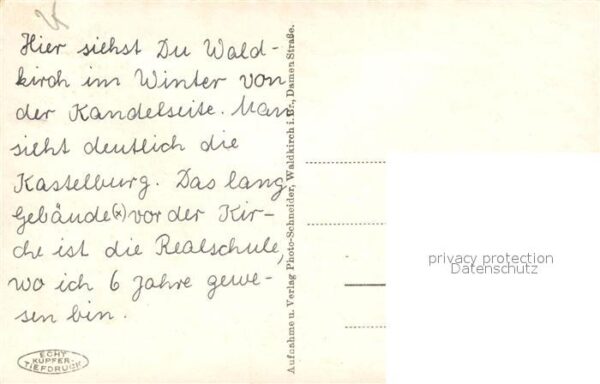 Hier siehst Du Wald-
kirch im Winter von
der Kandelseite. Man
sieht deutlich die
Kastelburg. Das lang
Gebäude(x) vor der Kir-
che ist die Realschule,
wo ich 6 Jahre gewe-
sen bin.
ECHT
KUPFER-
TIEFDRUCK
Aufnahme u. Verlag Photo-Schneider, Waldkirch i. Br., Damen Straße.
privacy protection
Datenschutz